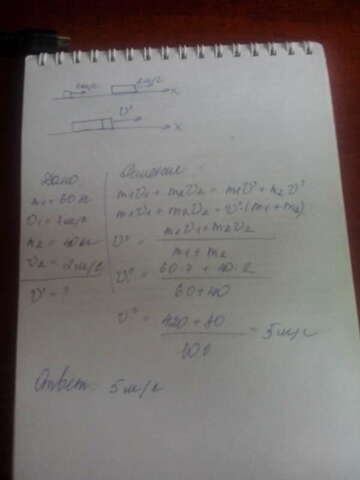 2м/с
x
v'
x
Дано
m₁ = 60 кг
v₁ = 7 м/с
m₂ = 40 кг
v₂ = 2 м/с
v' - ?
Решение:
m₁v₁ + m₂v₂ = m₁v' + m₂v'
m₁v₁ + m₂v₂ = v'(m₁ + m₂)
v' = m₁v₁ + m₂v₂ / m₁ + m₂
v' = 60·7 + 40·2 / 60 + 40
v' = 420 + 80 / 100 = 5 м/с
Ответ: 5 м/с